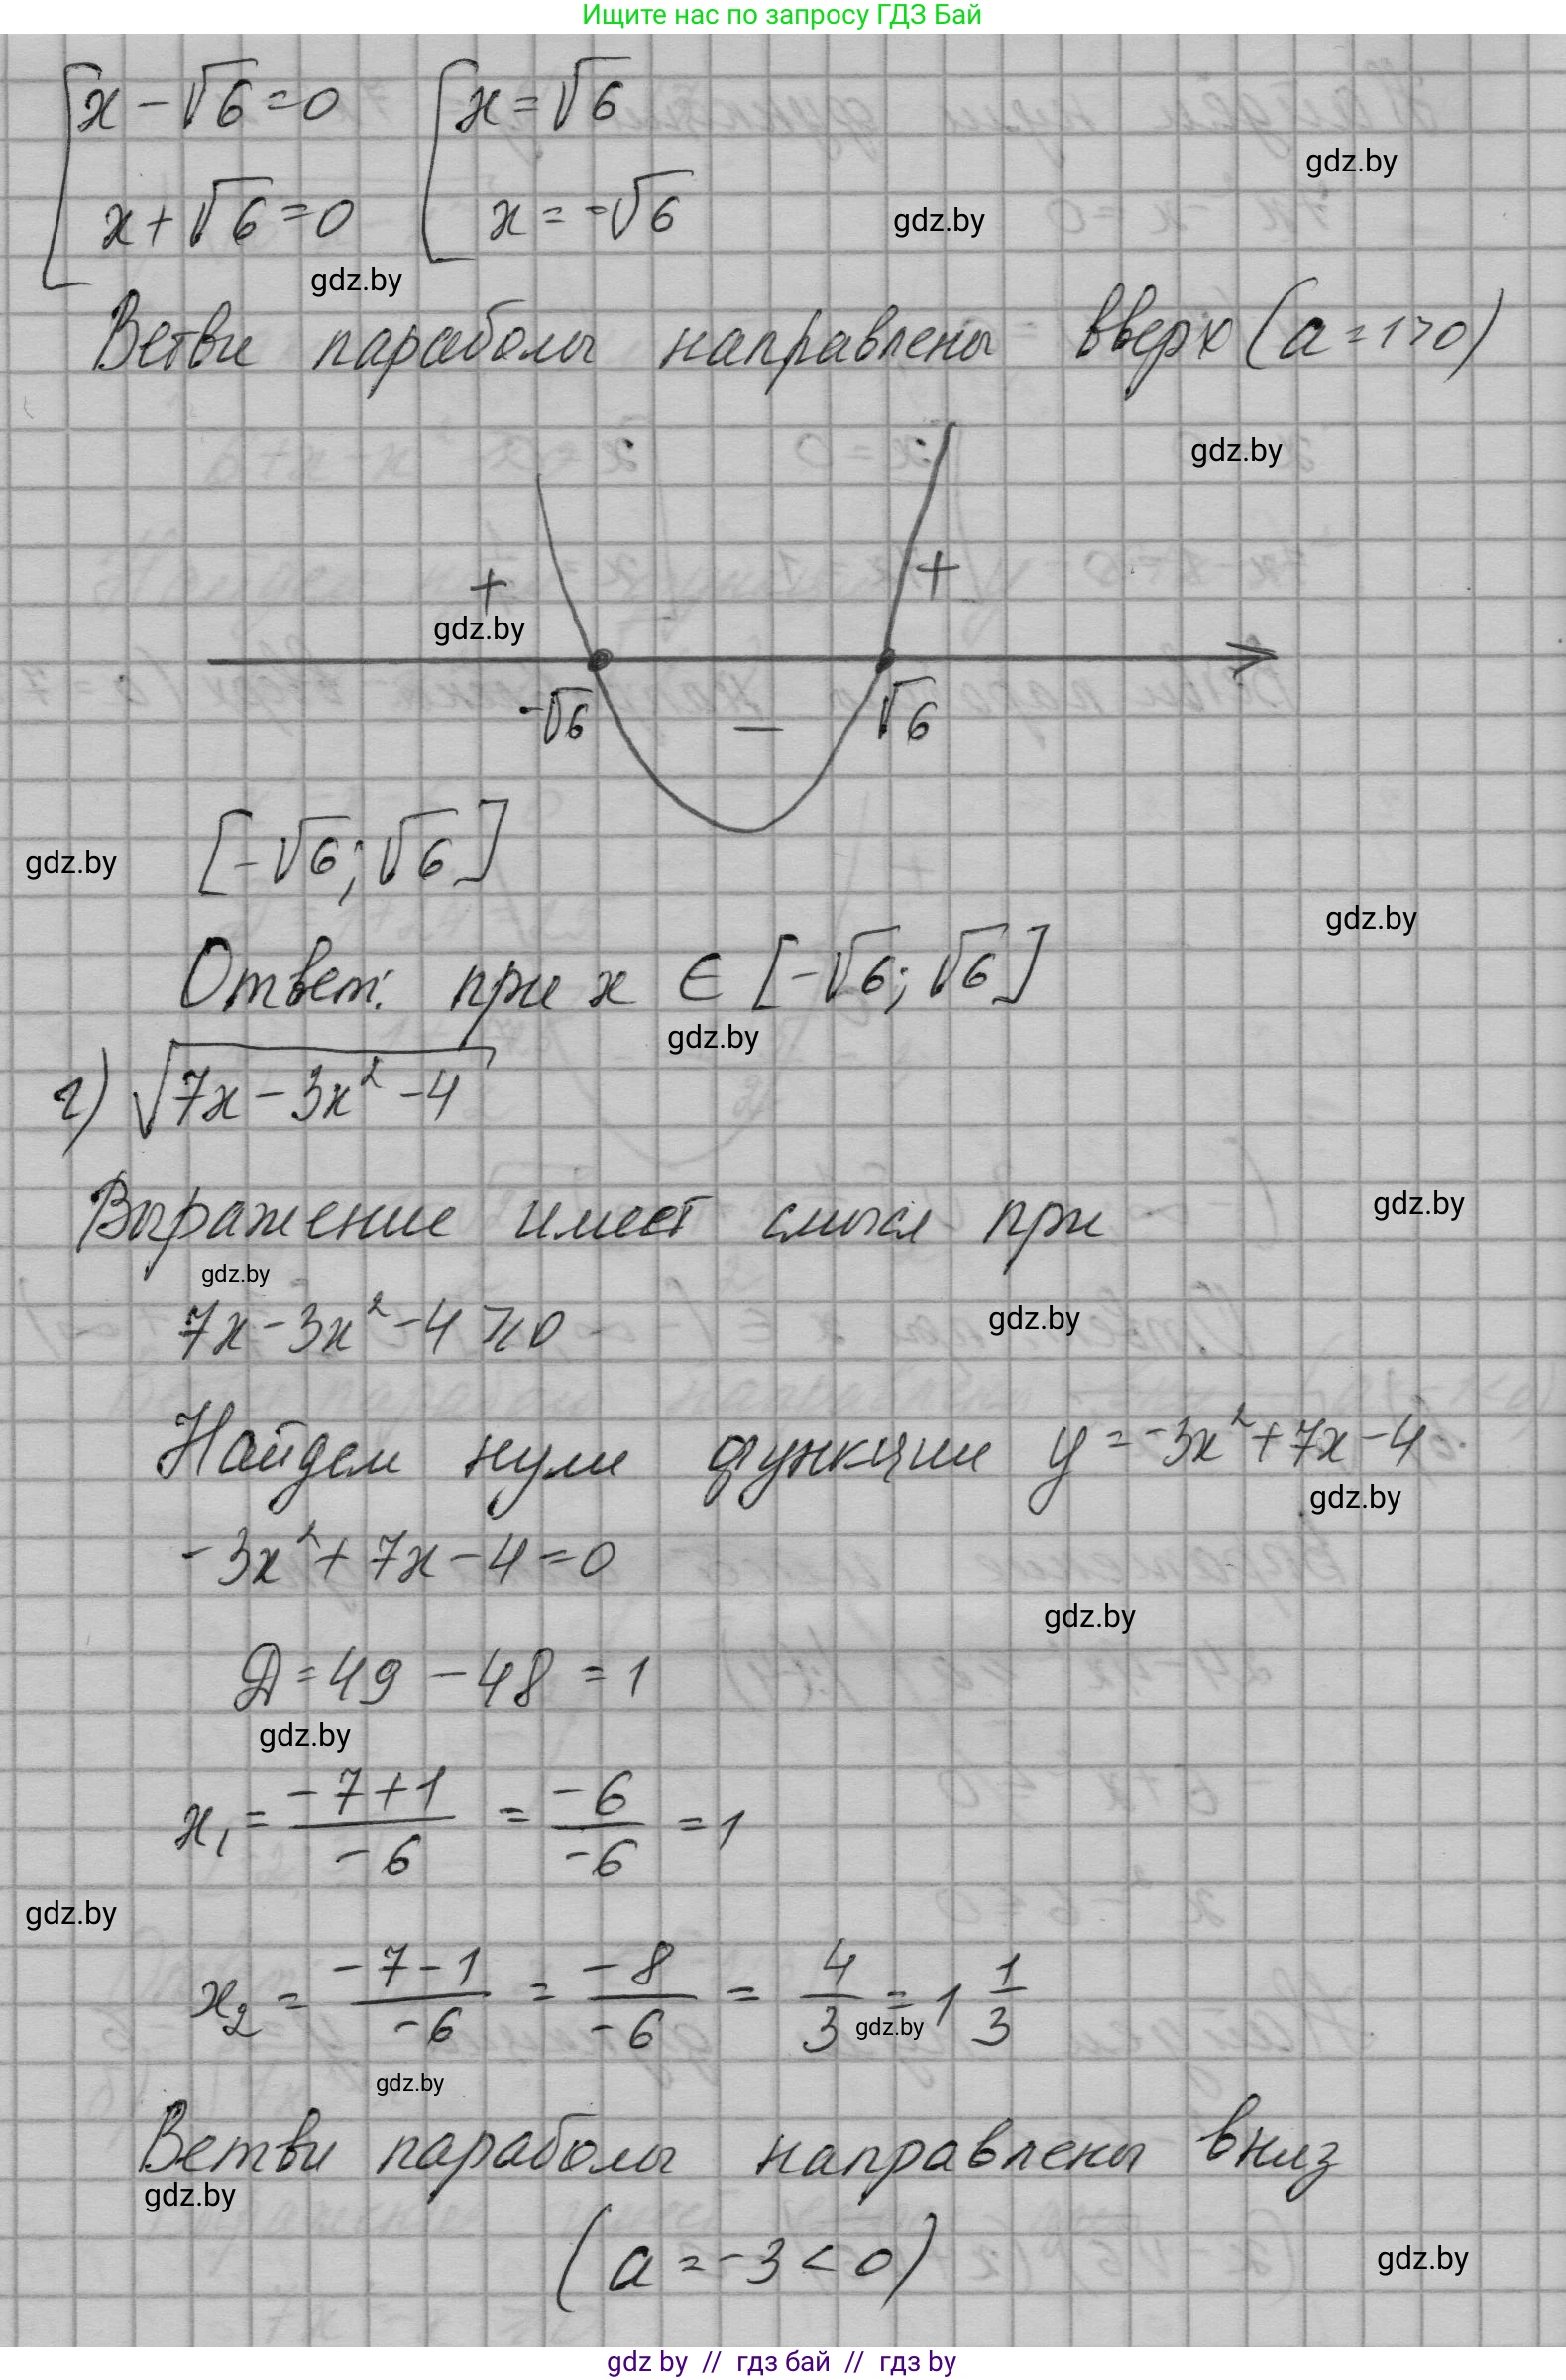 Ищите нас по запросу ГДЗ Бай
x - √6 = 0    x = √6
gdz.by
x + √6 = 0    x = -√6
gdz.by
gdz.by
Ветви параболы направлены вверх (a = 1 > 0)
gdz.by
+ +
gdz.by
-√6 − √6
[-√6; √6]
gdz.by
gdz.by
Ответ: при x ∈ [-√6; √6]
gdz.by
г) √(7x - 3x² - 4)
Выражение имеет смысл при
gdz.by
gdz.by
7x - 3x² - 4 ≥ 0
gdz.by
Найдем нули функции y = -3x² + 7x - 4
gdz.by
-3x² + 7x - 4 = 0
gdz.by
Д = 49 - 48 = 1
gdz.by
x₁ = (-7+1)/(-6) = -6/-6 = 1
gdz.by
x₂ = (-7-1)/(-6) = -8/-6 = 4/3 = 1 1/3
gdz.by
gdz.by
Ветви параболы направлены вниз
gdz.by
(a = -3 < 0)
gdz.by
gdz.by // гдз бай // гдз by